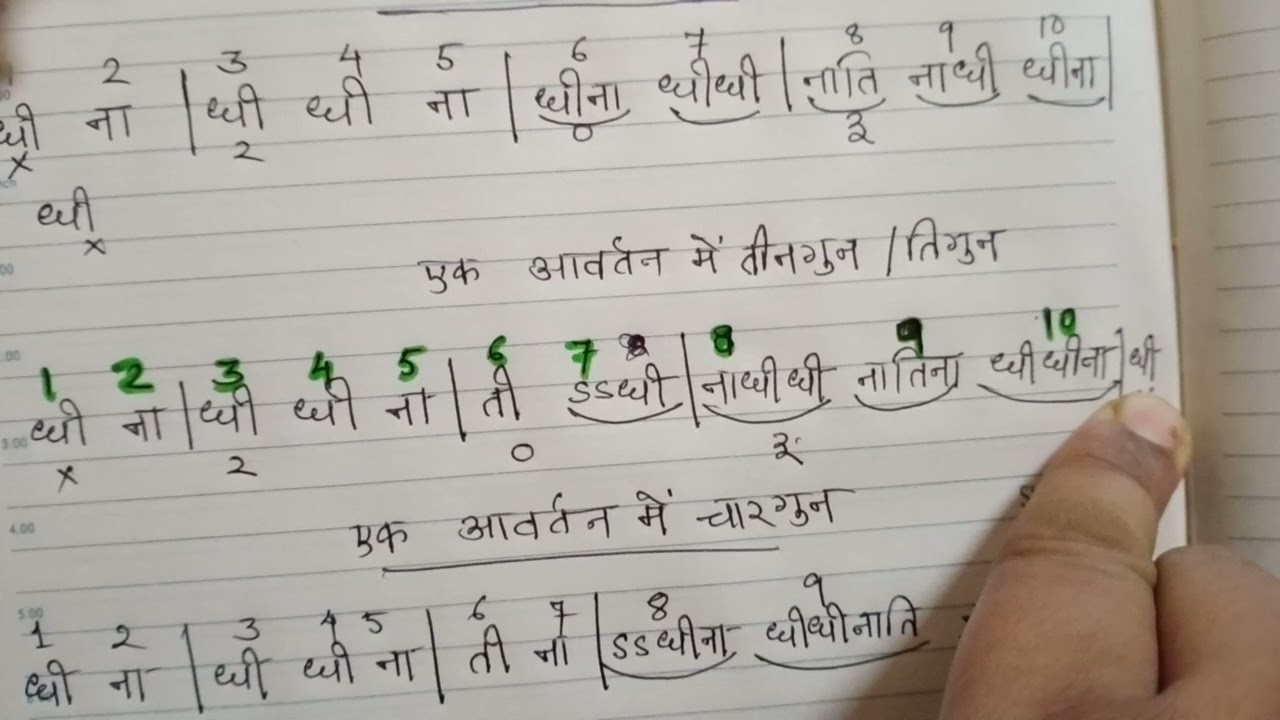 2 3 4 5 6 7 8 9 10
धी ना | धी धी ना | धीना धीधी | नाति नाधी धीना |
x 2 0 3
धी
x
एक आवर्तन में तीनगुन / तिगुन
1 2 3 4 5 6 7 8 9 10
धी ना | धी धी ना | ती ऽऽधी | नाधीधी नातिना धीधीना | धी
x 2 0 3
एक आवर्तन में चारगुन
1 2 3 4 5 6 7 8 9
धी ना | धी धी ना | ती ना | ऽऽधीना धीधीनाति